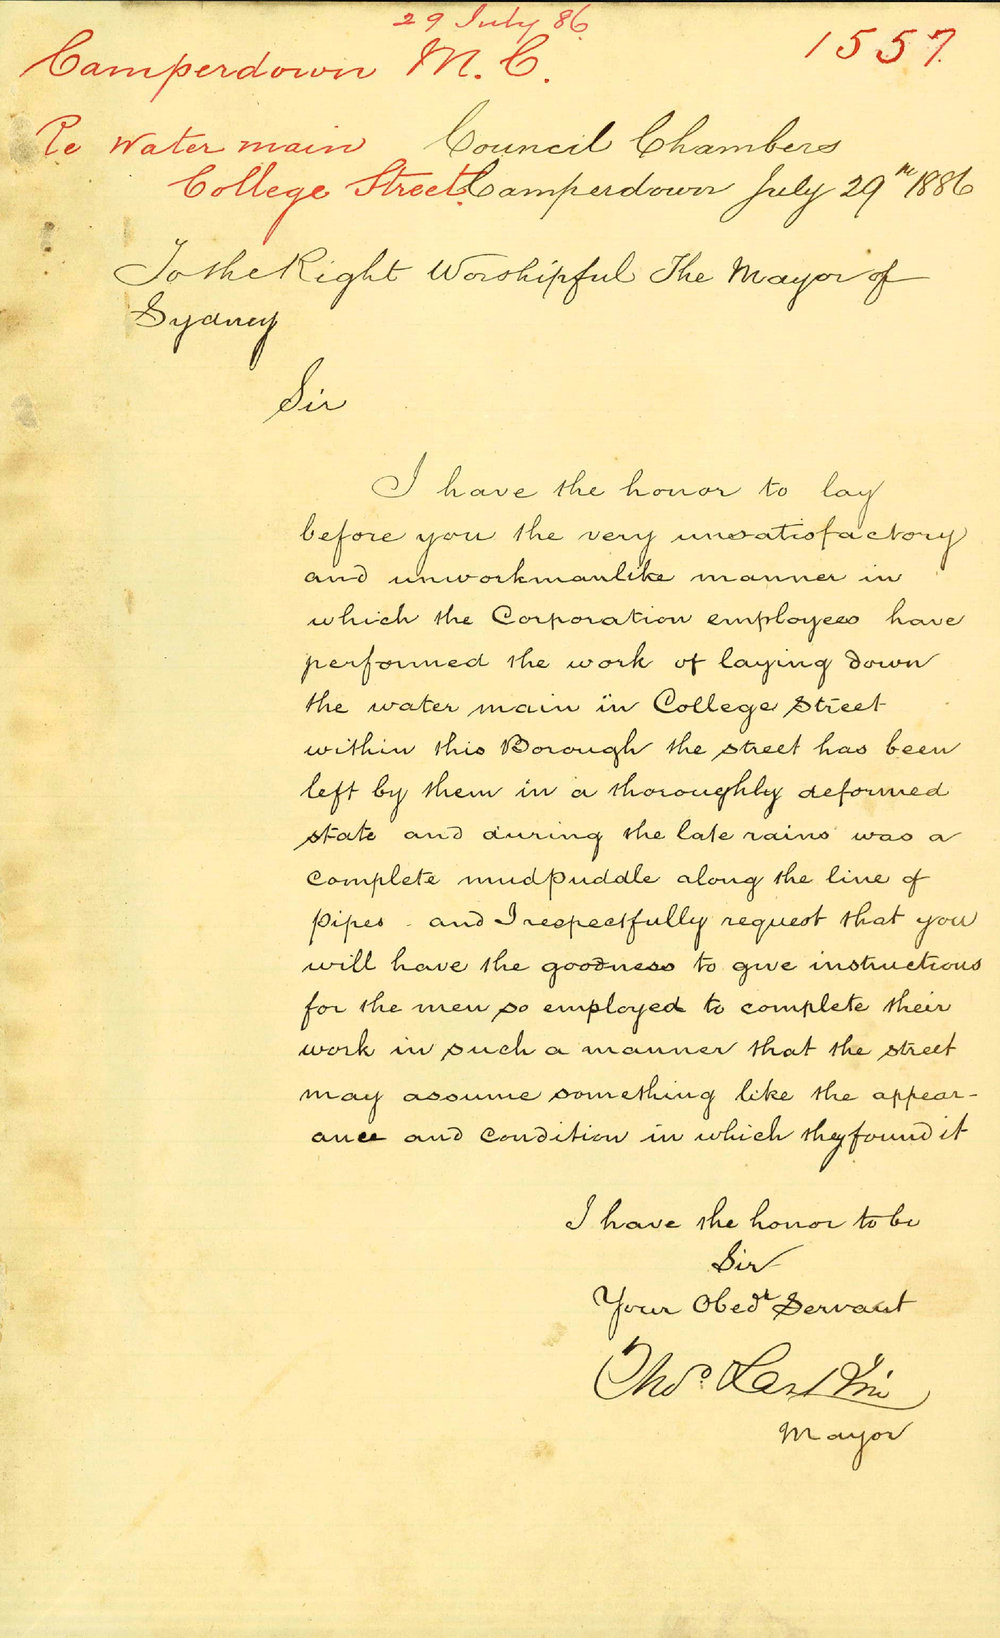 29 July 86.
Camperdown M. C.
1557.
Re water main
College Street.
Council Chambers
Camperdown July 29th 1886
To the Right Worshipful The Mayor of
Sydney
Sir
I have the honor to lay
before you the very unsatisfactory
and unworkmanlike manner in
which the Corporation employees have
performed the work of laying down
the water main in College Street
within this Borough the street has been
left by them in a thoroughly deformed
state and during the late rains was a
complete mudpuddle along the line of
pipes. and I respectfully request that you
will have the goodness to give instructions
for the men so employed to complete their
work in such a manner that the street
may assume something like the appear-
ance and condition in which they found it
I have the honor to be
Sir
Your Obedt Servant
Thos.
Mayor